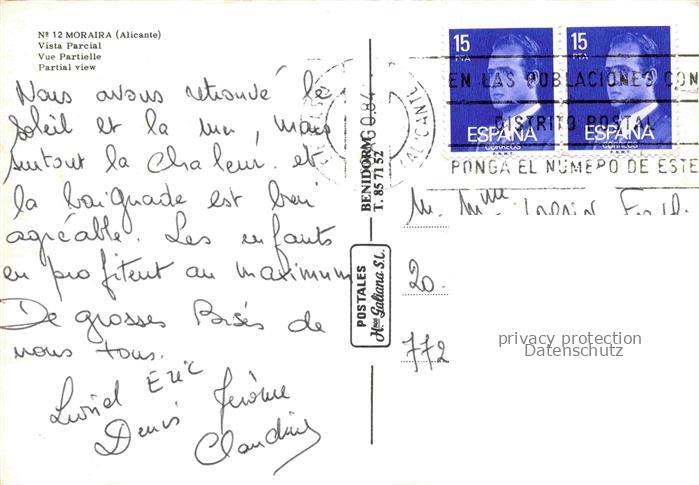 Nº 12 MORAIRA (Alicante)
Vista Parcial
Vue Partielle
Partial view
Nous avons retrouvé le
soleil et la mer, mais
surtout la chaleur et
la baignade est bien
agréable. Les enfants
en profitent au maximum
De grosses Bises de
nous tous.
Lionel Eric
Denis Jérôme
Claudine
POSTALES
Hnos Galiana S.L.
BENIDORM
T. 85 71 52
ALICANTE
15
PTA
ESPAÑA
CORREOS
F.N.M.T.
15
PTA
ESPAÑA
CORREOS
F.N.M.T.
EN LAS POBLACIONES CON
DISTRITO POSTAL
PONGA EL NUMERO DE ESTE
M. Mme
20.
772
privacy protection
Datenschutz